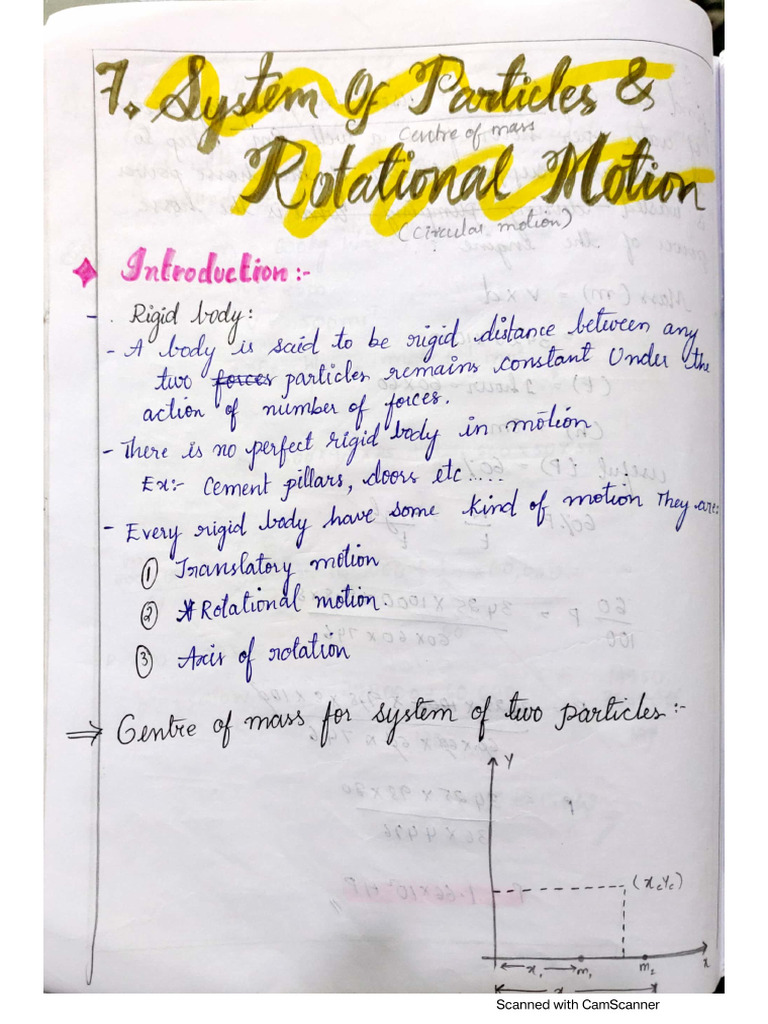 7. System Of Particles &
Centre of mass
Rotational Motion
(Circular motion)
Introduction :-
- . Rigid body:
- A body is said to be rigid distance between any
two forces particles remains constant Under the
action of number of forces.
- There is no perfect rigid body in motion
Ex:- Cement pillars, doors etc.....
- Every rigid body have some kind of motion They are:
① Translatory motion
② Rotational motion.
③ Axis of rotation
⇒ Centre of mass for system of two particles:-
Y
(x꜀Y꜀)
x₁ m₁ m₂ x
Scanned with CamScanner